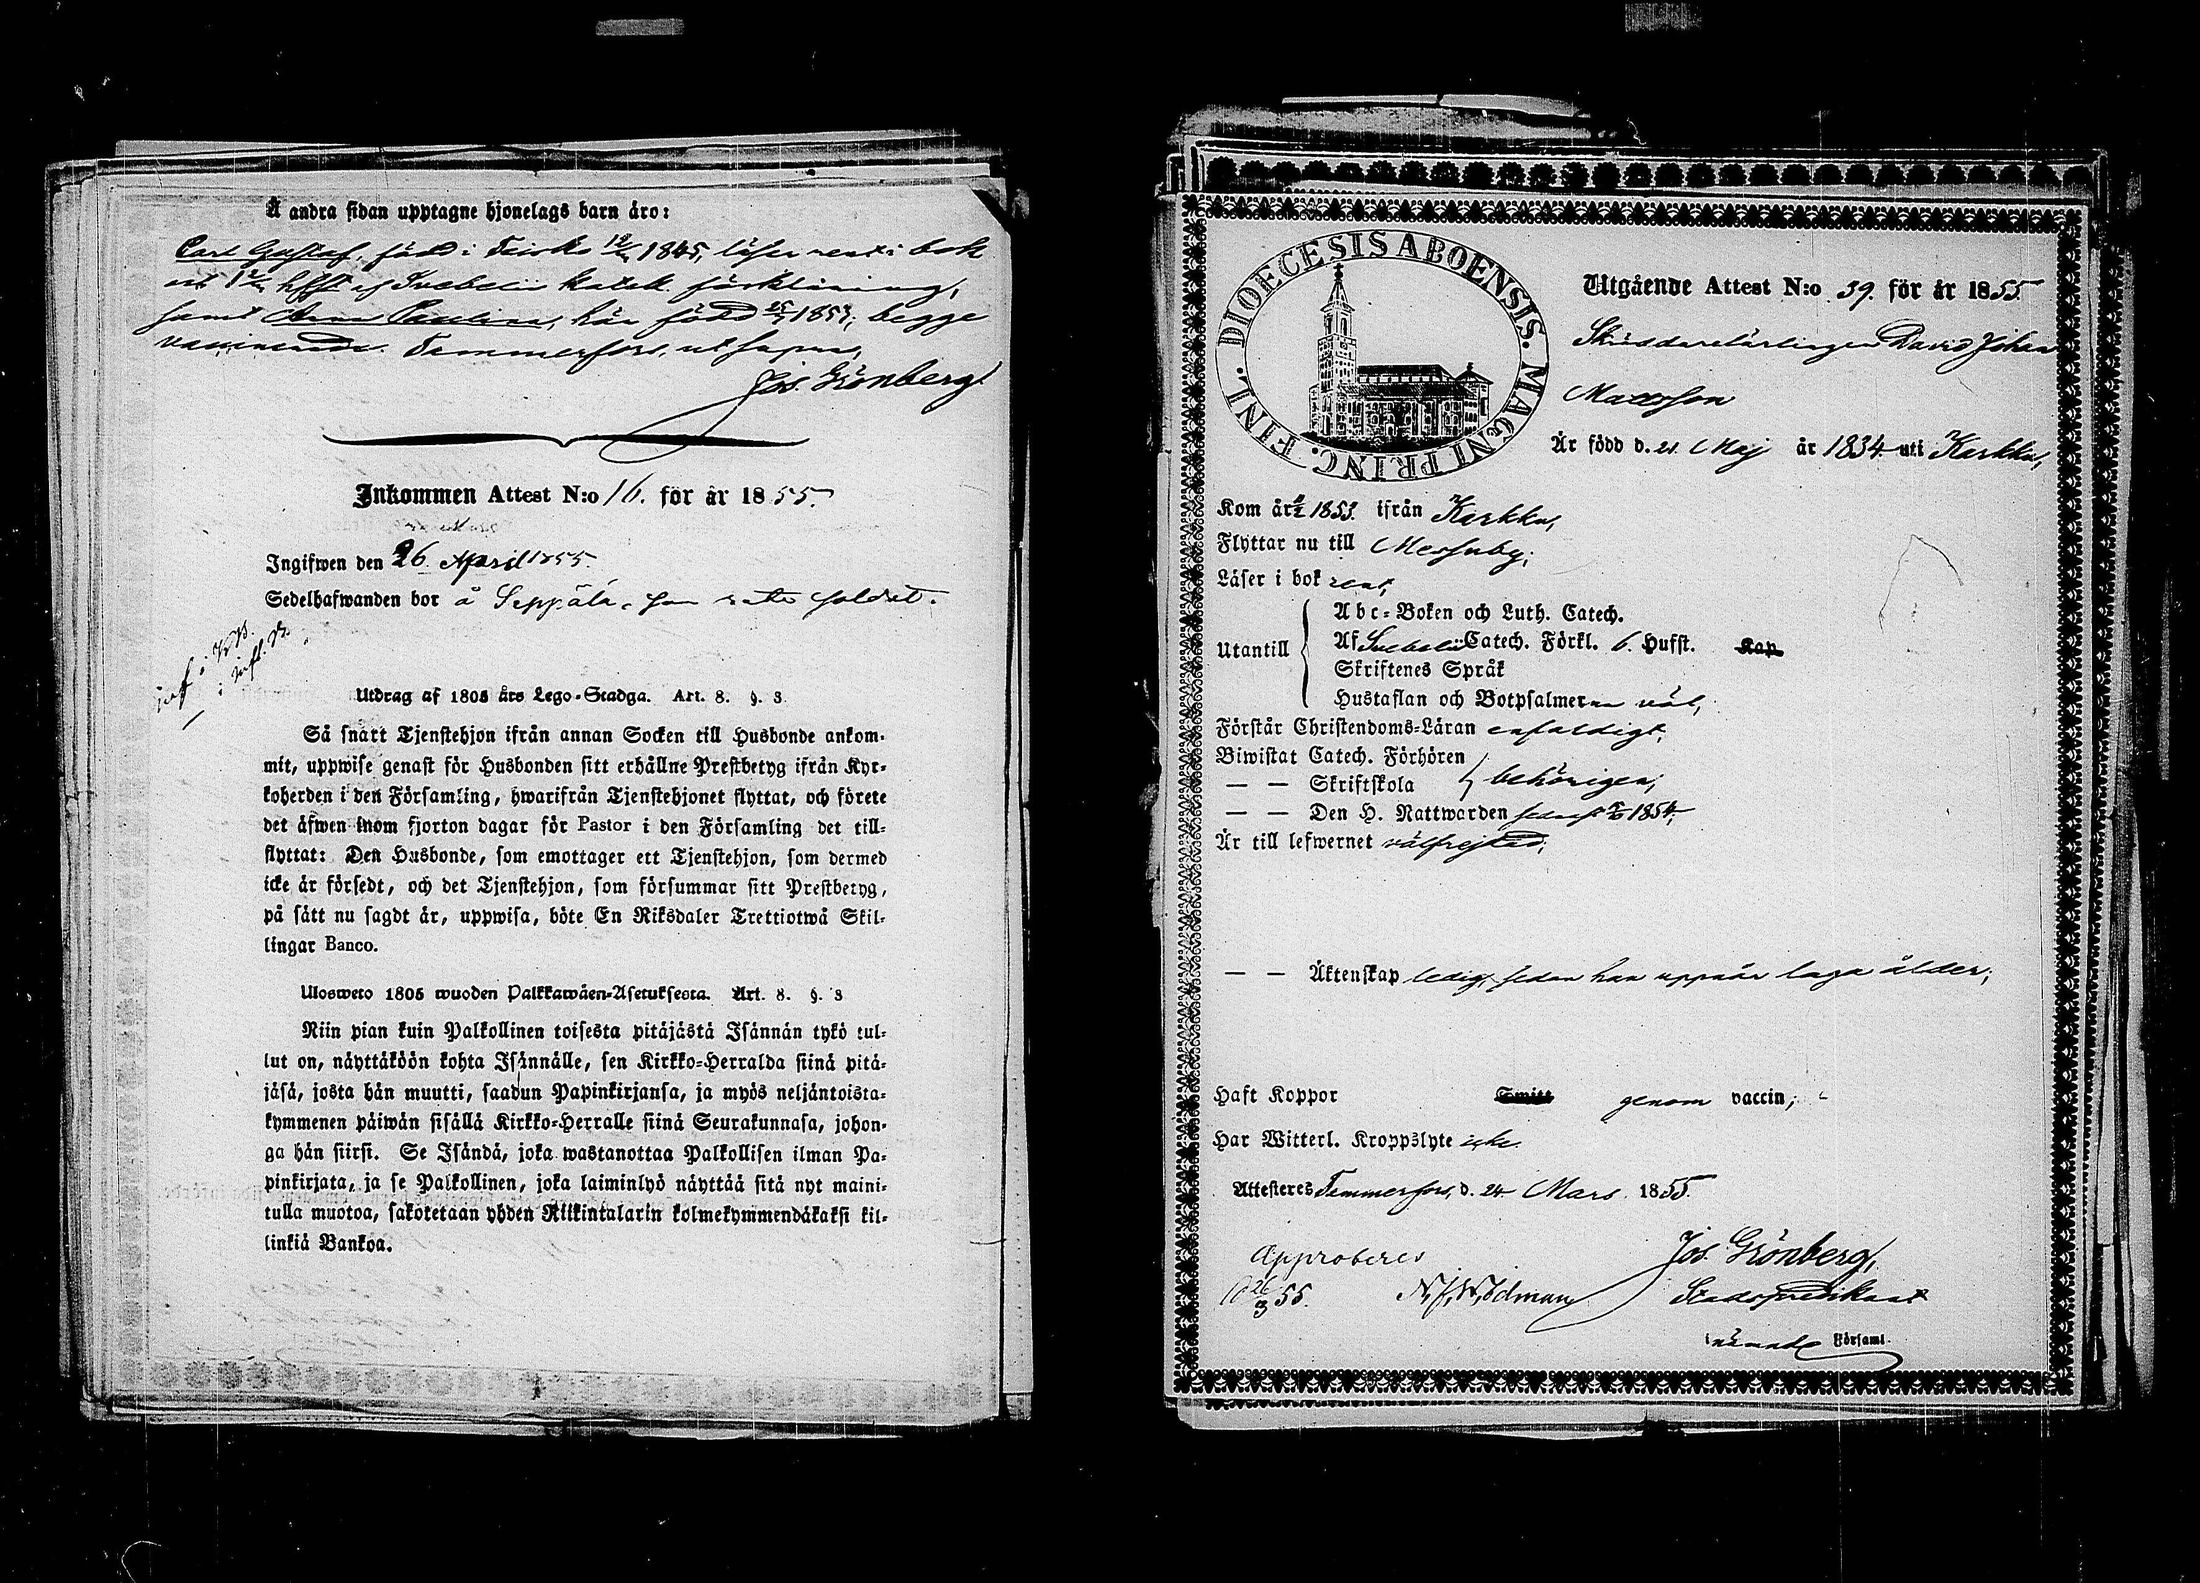 Å andra sidan upptagne hjonelags barn äro:
Carl Gustaf, född i Teisko 1845, läser rent i bok
hfst af Svebelii katek. förklaring,
samt Anna Paulina, här född 1853; begge
vaccinerade. Tammerfors, ut supra,
Jos. Grönberg.
Inkommen Attest N:o 16. för år 1855.
Ingifwen den 26 April 1855.
Sedelhafwanden bor å Seppälä, soldat.
inf. i
i infl. B.
Utdrag af 1805 års Lego-Stadga. Art. 8. §. 3
Så snart Tjenstehjon ifrån annan Socken till Husbonde ankom-
mit, uppwise genast för Husbonden sitt erhållne Prestbetyg ifrån Kyr-
koherden i den Församling, hwarifrån Tjenstehjonet flyttat, och förete
det äfwen inom fjorton dagar för Pastor i den Församling det till-
flyttat: Den Husbonde, som emottager ett Tjenstehjon, som dermed
icke är försedt, och det Tjenstehjon, som försummar sitt Prestbetyg,
på sätt nu sagdt är, uppwisa, böte En Riksdaler Trettiotwå Skil-
lingar Banco.
Ulosweto 1805 wuoden Palkkawäen-Asetuksesta. Art. 8. §. 3
Niin pian kuin Palkollinen toisesta pitäjästä Isännän tykö tul-
lut on, näyttäköön kohta Isännälle, sen Kirkko-Herralda siinä pitä-
jäsä, josta hän muutti, saadun Papinkirjansa, ja myös neljäntoista-
kymmenen päiwän sisällä Kirkko-Herralle siinä Seurakunnasa, johon-
ga hän siirsi. Se Isändä, joka wastanottaa Palkollisen ilman Pa-
pinkirjata, ja se Palkollinen, joka laiminlyö näyttää sitä nyt maini-
tulla muotoa, sakotetaan yhden Riikintalarin kolmekymmendäkaksi kil-
linkiä Bankoa.
DIOECESIS ABOENSIS. MAGNI PRINC. FINL.
Utgående Attest N:o 39. för år 1855.
Skräddarelärlingen David Johan
Mattsson
Är född d. 21 Maj år 1834 uti Karkku,
Kom år 1853. ifrån Karkku,
Flyttar nu till Messuby;
Läser i bok rent,
Abc-Boken och Luth. Catech.
Utantill Af Svebelii Catech. Förkl. 6. Hufst. Kap
Skriftenes Språk
Hustaflan och Botpsalmerna väl,
Förstår Christendoms-Läran enfaldigt,
Biwistat Catech. Förhören
— — Skriftskola behörigen;
— — Den H. Nattwarden sednast 1854,
Är till lefwernet välfrejdad;
— — Äktenskap ledig, sedan han uppnår laga ålder;
Haft Koppor Smitt genom vaccin;
Har Witterl. Kroppslyte icke.
Attesteres Tammerfors, d. 24 Mars 1855.
Approberes Jos. Grönberg,
26/3 55. Stadspredikant
i nämnde Församl.